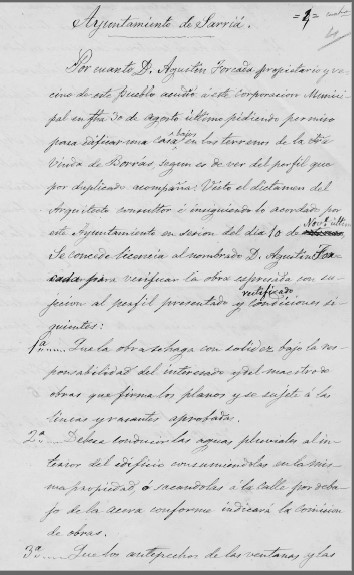 Ayuntamiento de Sarriá.
= 2 =
Por cuanto D. Agustin Forcada propietario y ve-
cino de este pueblo acudió á este corporacion Munici-
pal en fha 30 de agosto último pidiendo permiso
para edificar una casa bajos en los terrenos de la Sra
Viuda de Borrás, segun es de ver del perfil que
por duplicado acompaña: Visto el dictámen del
Arquitecto consultor é insiguiendo lo acordado por
este Ayuntamiento en sesion del dia 10 de Novе. último
Se concede licencia al nombrado D. Agustin For-
cada para verificar la obra espresada con su-
jecion al perfil presentado y rectificado condiciones si-
guientes:
1ª.... Que la obra se haga con solidez bajo la res-
ponsabilidad del interesado y del maestro de
obras que firma los planos y se sujete á las
lineas y rasantes aprobadas.
2ª.... Deberá conducir las aguas pluviales al in-
terior del edificio consumiéndolas en la mis-
ma propiedad, ó sacandolas á la calle por deba-
jo de la acera conforme indicará la comision
de obras.
3ª.... Que los antepechos de las ventanas y las